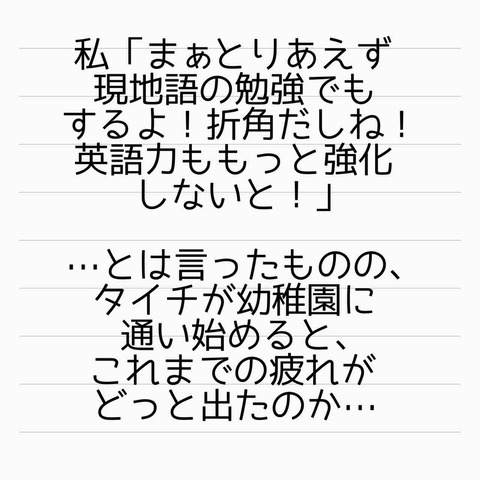 私「まぁとりあえず
現地語の勉強でも
するよ！折角だしね！
英語力ももっと強化
しないと！」
…とは言ったものの、
タイチが幼稚園に
通い始めると、
これまでの疲れが
どっと出たのか…